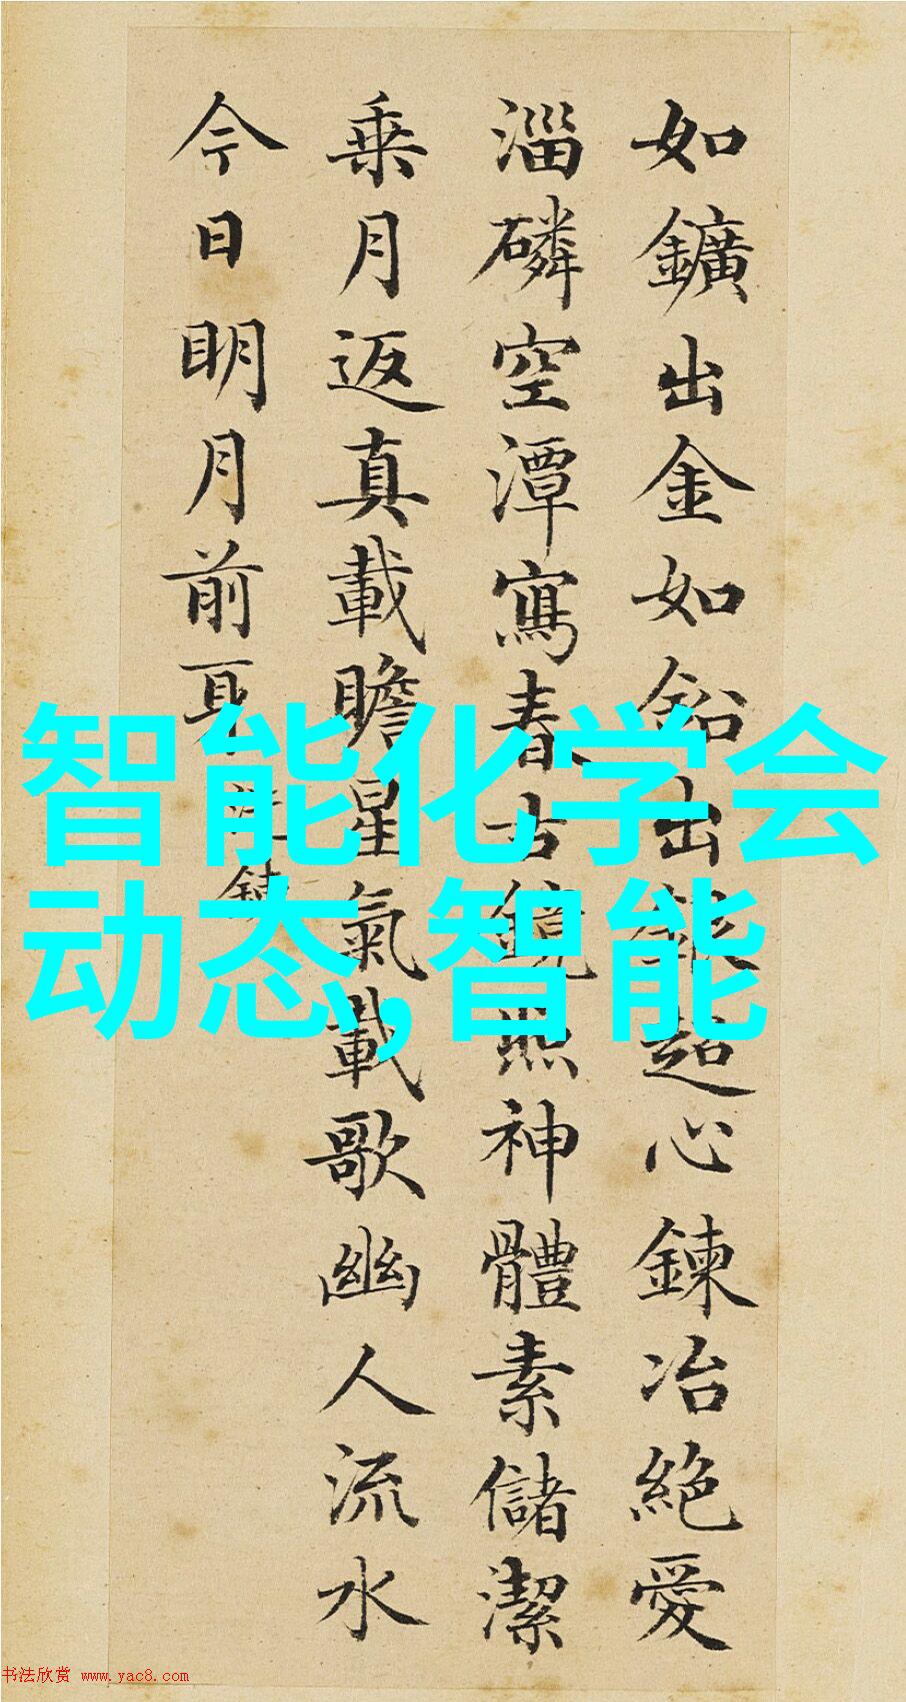 如鑛出金如鉛出銀超心鍊冶絕愛
淄磷空潭寫春古鏡照神體素儲潔
乗月返真載瞻星氣載歌幽人流水
今日明月前身 洗鍊
智能化学会
动态,智能
书法欣赏 www.yac8.com